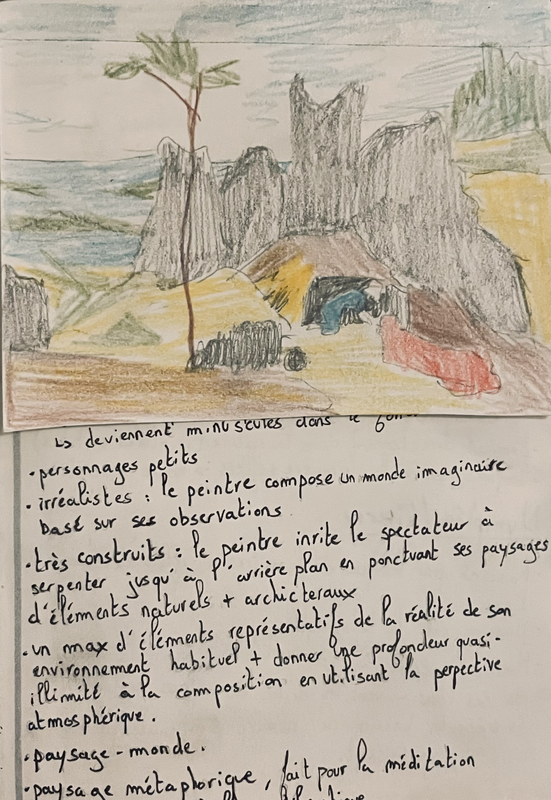 ↳ deviennent minuscules dans le
• personnages petits
• irréalistes : le peintre compose un monde imaginaire
basé sur ses observations
• très construits : le peintre invite le spectateur à
serpenter jusqu'à l'arrière plan en ponctuant ses paysages
d'éléments naturels + archicteraux
• un max d'éléments représentatifs de la réalité de son
environnement habituel + donner une profondeur quasi-
illimité à la composition en utilisant la perpective
atmosphérique.
• paysage - monde.
• paysage métaphorique, fait pour la méditation